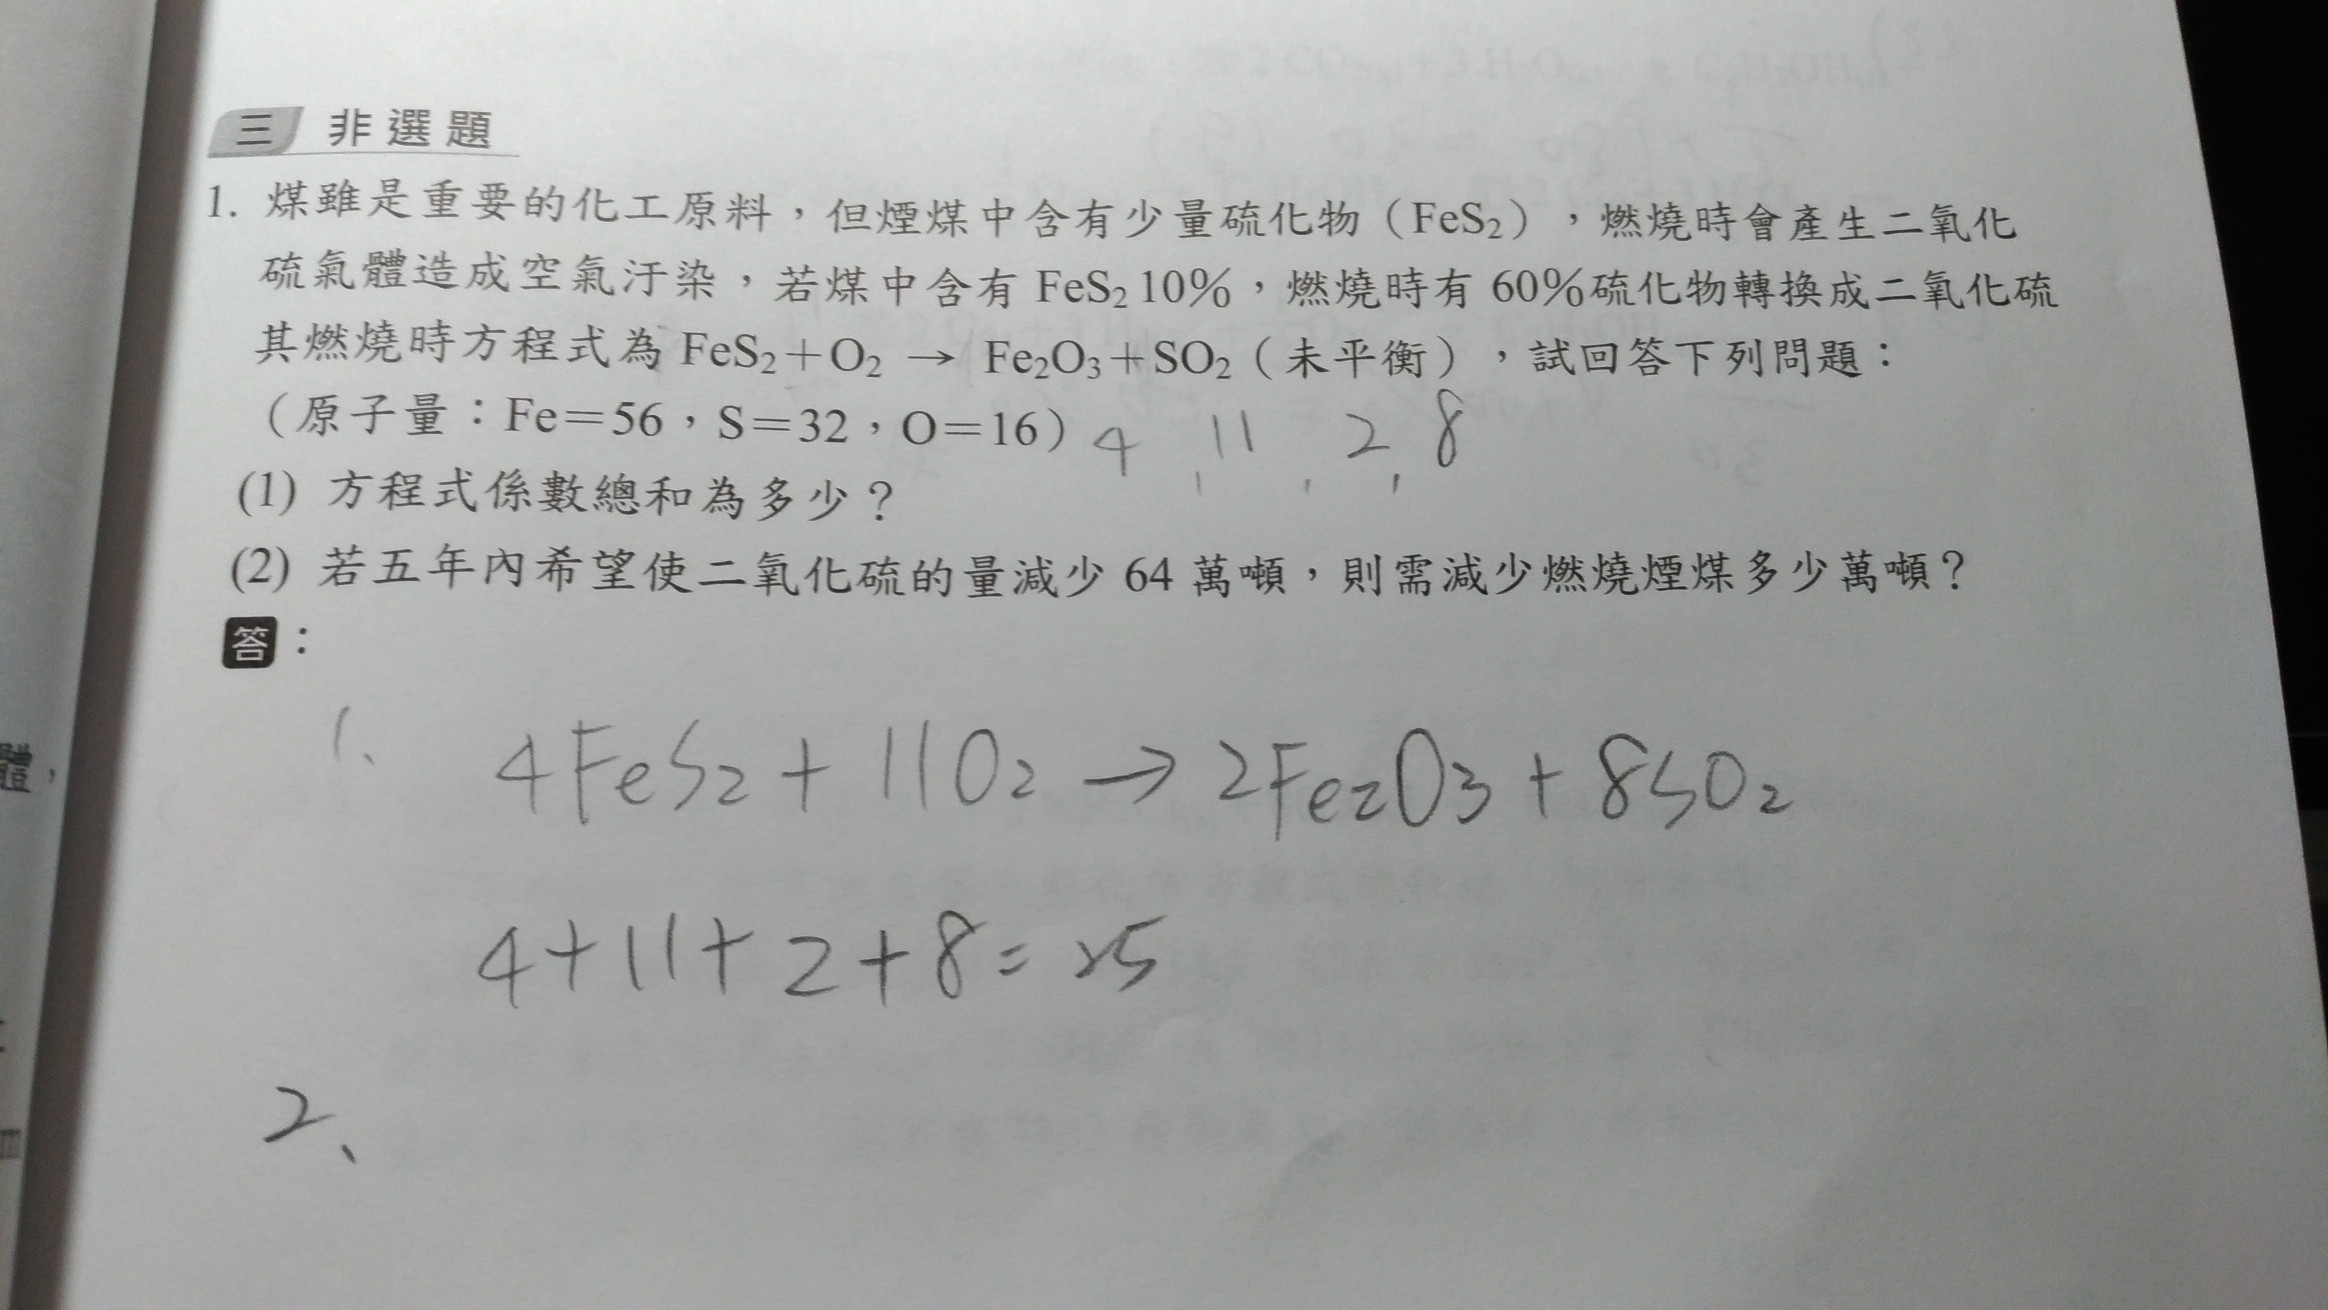 三 非選題
1. 煤雖是重要的化工原料，但煙煤中含有少量硫化物（FeS₂），燃燒時會產生二氧化
硫氣體造成空氣汙染，若煤中含有 FeS₂ 10%，燃燒時有 60%硫化物轉換成二氧化硫
其燃燒時方程式為 FeS₂＋O₂ → Fe₂O₃＋SO₂（未平衡），試回答下列問題：
（原子量：Fe＝56，S＝32，O＝16） 4, 11, 2, 8
(1) 方程式係數總和為多少？
(2) 若五年內希望使二氧化硫的量減少 64 萬噸，則需減少燃燒煙煤多少萬噸？
答：
1、 4FeS₂ + 11O₂ → 2Fe₂O₃ + 8SO₂
4+11+2+8=25
2、
體，
m